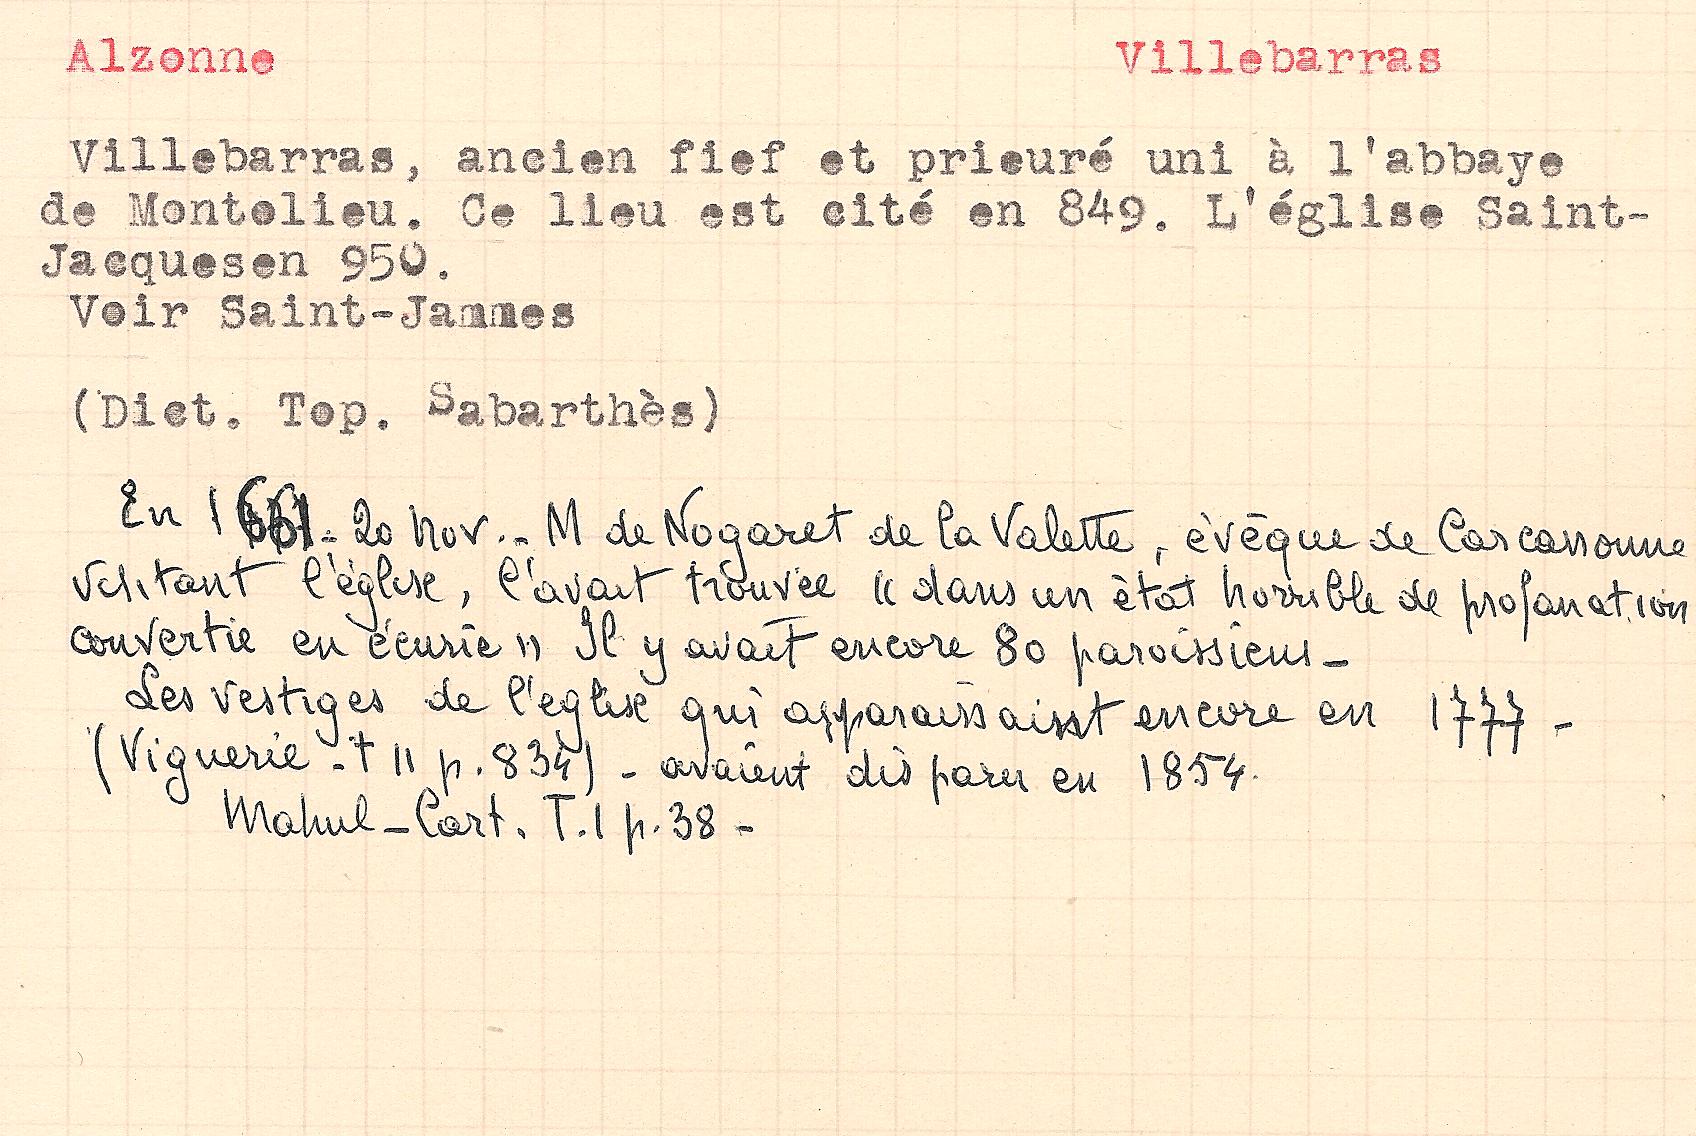 Alzonne Villebarras
Villebarras, ancien fief et prieuré uni à l'abbaye
de Montolieu. Ce lieu est cité en 849. L'église Saint-
Jacquesen 950.
Voir Saint-Jammes
(Dict. Top. Sabarthès)
En 1661 - 20 Nov. - M de Nogaret de la Valette, évêque de Carcassonne
visitant l'église, l'avait trouvée « dans un état horrible de profanation
convertie en écurie » Il y avait encore 80 paroissiens -
Les vestiges de l'église qui apparaissaient encore en 1777 -
(Viguerie - t II p. 834) - avaient disparu en 1854.
Mahul - Cart. T. I p. 38 -